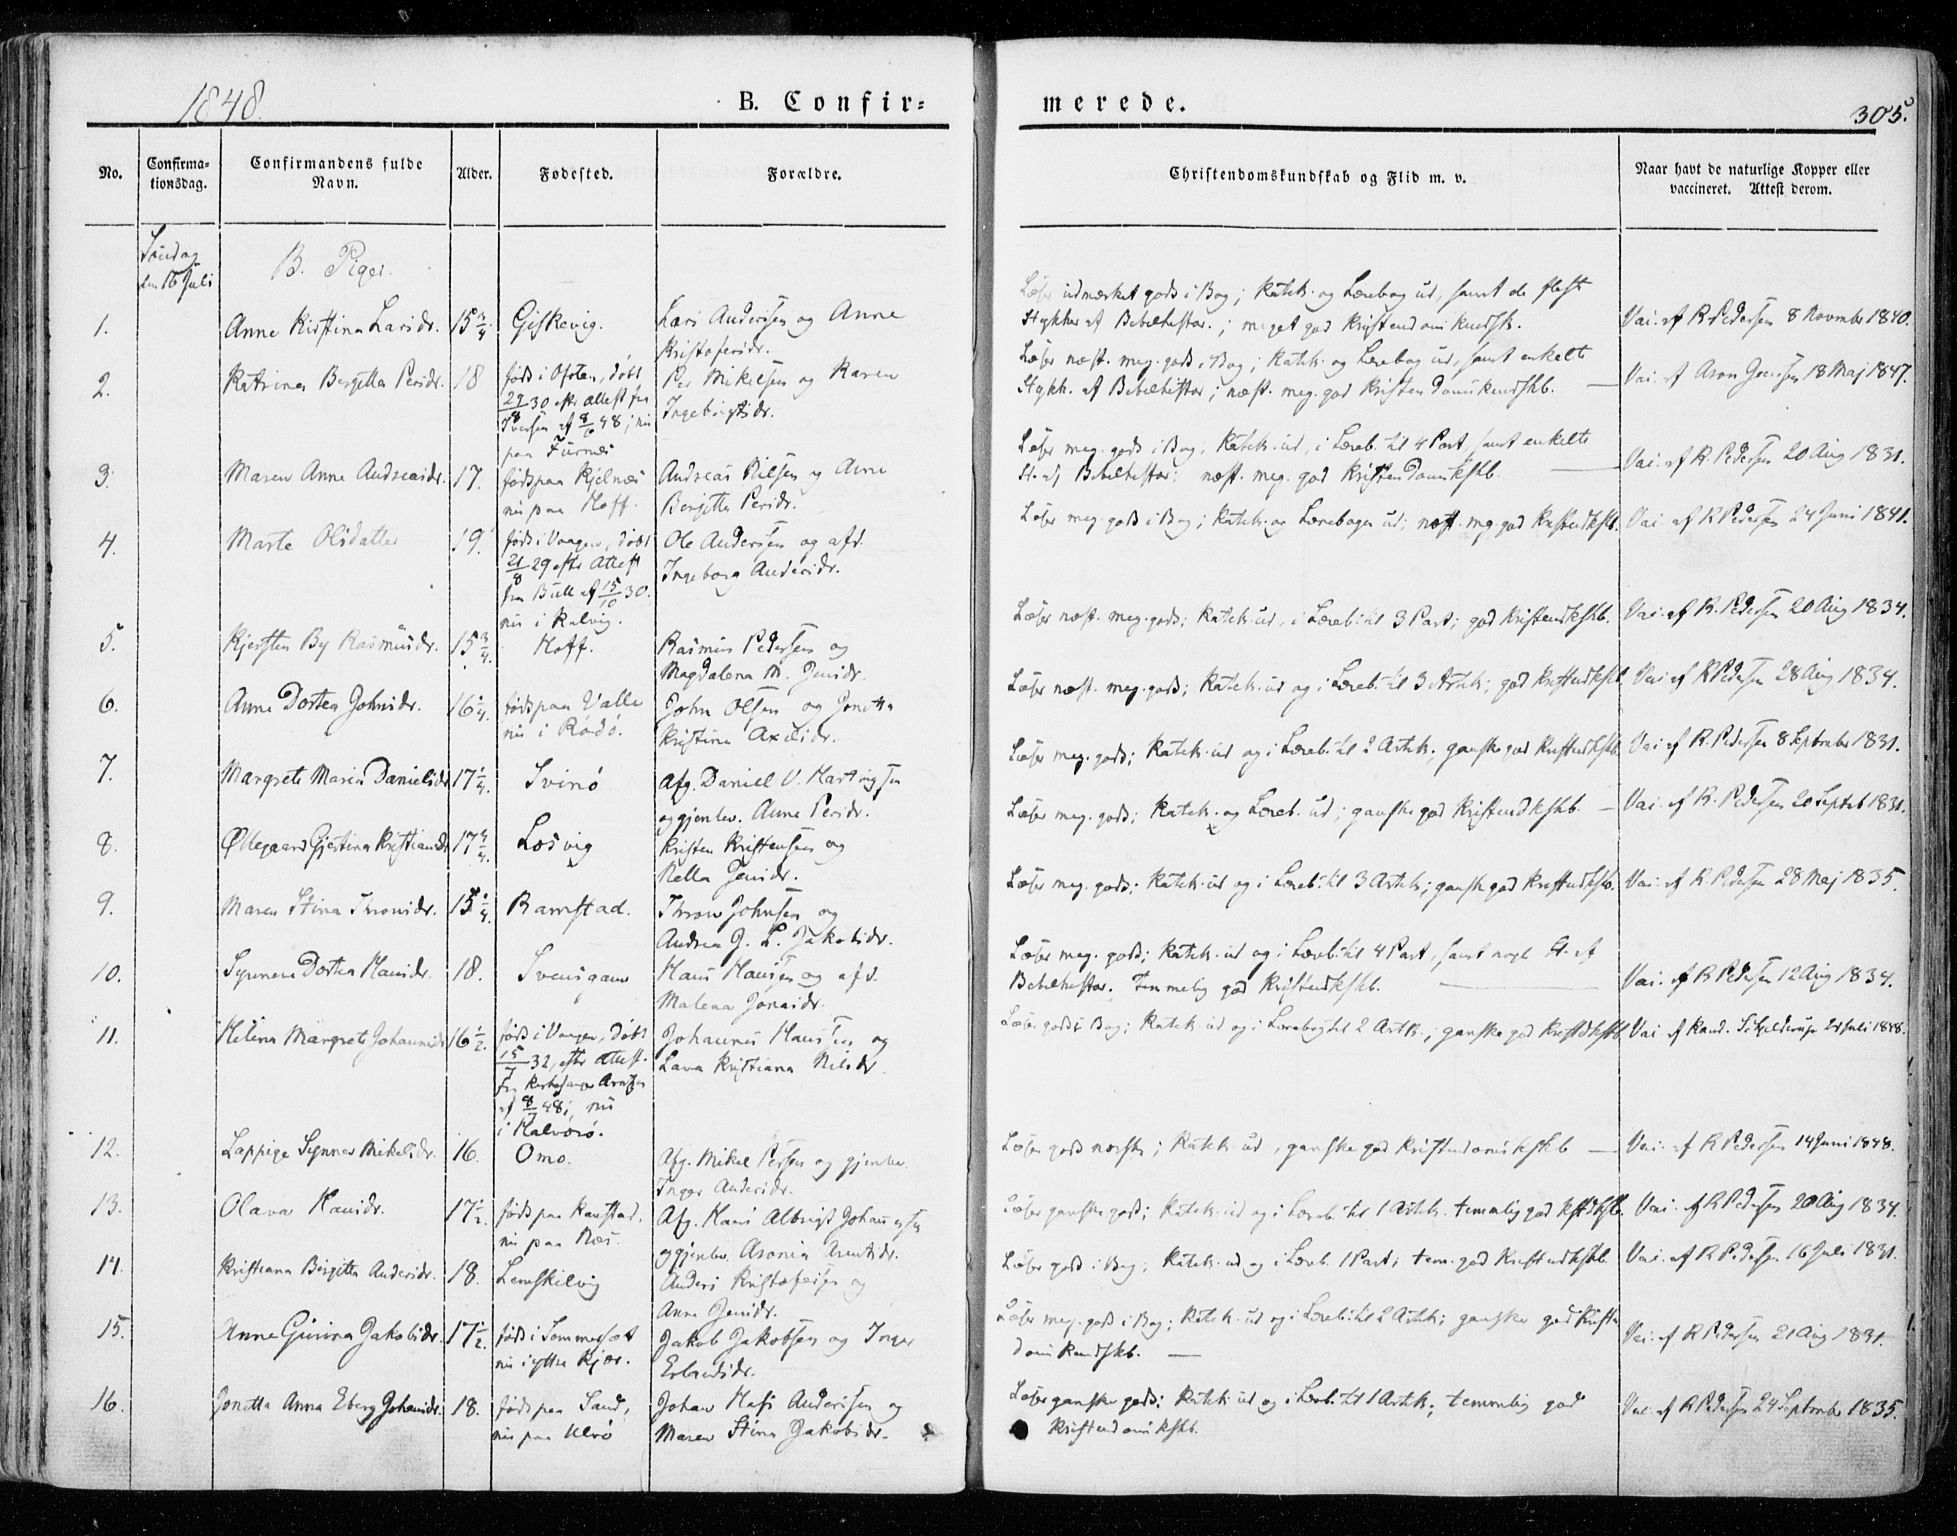 1848.
B. Confir=
merede.
305.
No.
Confirma=
tionsdag.
Confirmandens fulde
Navn.
Alder.
Fødested.
Forældre.
Christendomskundskab og Flid m. v.
Naar havt de naturlige Kopper eller
vaccineret. Attest derom.
Søndag
den 16 Juli
B. Piger.
1.
Anne Kirstina Larsdr.
15 3/4
Giskevig.
Lars Andersen og Anne
Kristofersdr.
Læser udmærket godt i Bog; Katek. og Lærebog ud, samt de fleste
Stykker af Bibelhistor.; meget god Kristendomskundsk.
Vac. af R. Pedersen 8 November 1840.
2.
Katrina Bergitta Persdr.
18
født i Ofoten, døbt
29/8 30 efter Attest fra
Iversen af 8/6 48; nu
paa Furnæs
Per Mikelsen og Karen
Ingebrigtsdr.
Læser næst. meg. godt i Bog; Katek. og Lærebog ud, samt enkelte
Stykk. af Bibelhistor; næst. meg. god Kristendomskundskb. —
Vac. af Aron Jensen 18 Maj 1847.
3.
Maren Anne Andreasdr.
17.
født paa Kjelnæs
nu paa Hoff.
Andreas Nilsen og Anne
Bergitta Persdr.
Læser meg. godt i Bog. Katek. ud, i Læreb. til 4 Part, samt enkelte
St. af Bibelhistor: næst. meg. god Kristendomskskb.
Vac. af R. Pedersen 20 Aug 1831.
4.
Marte Olsdatter
19.
født i Vaagen, døbt
21/8 29 efter Attest
fra Bull af 15/10 30.
nu i Kalvig.
Ole Andersen og afd.
Ingeborg Andersdr.
Læser meg. godt i Bog; Katek. og Lærebogen ud; næst. meg god Kristendkskb.
Vac. af R Pedersen 24 Juni 1841.
5.
Kjersten By Rasmusdr.
15 3/4.
Hoff.
Rasmus Pedersen og
Magdalena M. Jensdr.
Læser næst. meg. godt; Katek. ud, i Læreb. til 3 Part; god Kristendkskb.
Vac. af R. Pedersen 20 Aug 1834.
6.
Anne Dortea Johnsdr.
16 1/4.
født paa Valle
nu i Rødø.
John Olsen og Jonetta
Kristina Axelsdr.
Læser næst. meg. godt; Katek. ud og i Læreb. til 3 Artik.; god Kristendkskb.
Vac. af R Pedersen 28 Aug 1834.
7.
Margrete Maria Danielsdr.
17 1/4.
Svinø
Afg. Daniel U. Hartvigsen
og gjenlev. Anne Persdr.
Læser meg. godt; Katek. ud og i Læreb. til 2 Artik. ganske god Kristendkskb.
Vac af R. Pedersen 8 September 1831.
8.
Øllegaard Gjertina Kristiansdr.
17 3/4.
Losvig
Kristen Kristensen og
Pella Jensdr.
Læser meg. godt; Katek. og Læreb. ud; ganske god Kristendkskb. —
Vac. af R. Pedersen 20 Septeb 1831.
9.
Maren Stina Thronsdr.
15 1/4.
Ramstad.
Thron Johnsen og
Andrea J. L. Jakobsdr.
Læser meg. godt; Katek. ud og i Læreb. til 3 Artik; ganske god Kristendkskb.
Vac. af R Pedersen 28 Maj 1835.
10.
Synnera Dortea Hansdr.
18.
Svensgam
Hans Hansen og afd.
Malena Jonasdr.
Læser meg. godt; Katek. ud og i Læreb. til 4 Part, samt nogl St. af
Bibelhistor. Temmelig god Kristendkskb.
Vac. af R Pedersen 12 Aug 1834.
11.
Helena Margrete Johannisdr
16 1/2.
født i Vaagen, døbt
15/7 32, efter Attest.
fra Kirkesanger Arntzen
af 8/7 48; nu
i Kalvorø.
Johannes Hansen og
Lava Kristiana Nilsdr.
Læser godt i Bog; Katek. ud og i Lærebog til 2 Artk.; ganske god Kristdkskb.
Vac. af Kand. Schelderup 21 Juli 1848.
12.
Lappige Synnev Mikelsdr.
16.
Omo.
Afg. Mikel Persen og gjenlev.
Inger Andersdr.
Læser godt norsk; Katek. ud, ganske god Kristendomskskb —
Vac. af R Pedersen 14 Juni 1848.
13.
Olava Hansdr.
17 1/2.
født paa Kanstad,
nu paa Næs.
Afg. Hans Albrigt Johansen
og gjenlev. Aronia Arentsdr.
Læser ganske godt; Katek. ud og i Læreb. til 1 Artik. temmlig god Kstdkskb.
Vac. af R Pedersen 20 Aug 1834.
14.
Kristiana Bergitta Andersdr.
18.
Lemskilvig
Anders Kristofersen og
Anne Jensdr.
Læser godt i Bog; Katek. ud og i Læreb. 1 Part; tem. god Kristendkskb.
Vac. af R Pedersen 16 Juli 1831.
15.
Anne Gurina Jakobsdr.
17 1/2.
født i Sommersæt
nu i yttre Kjær.
Jakob Jakobsen og Inger
Erlandsdr.
Læser meg. godt i Bog; Katek. ud og i Læreb. til 2 Artik; ganske god Kristen
domskundskb. —
Vac. af R Pedersen 21 Aug 1831.
16.
Jonetta Anna Eberg Johansdr.
18.
født paa Sand,
nu paa Ulvø
Johan Hass Andersen og
Maren Stina Jakobsdr.
Læser ganske godt; Katek. ud og i Læreb. til 1 Artik.; temmlig god
Kristendomskskb.
Vac. af R Pedersen 24 September 1835.